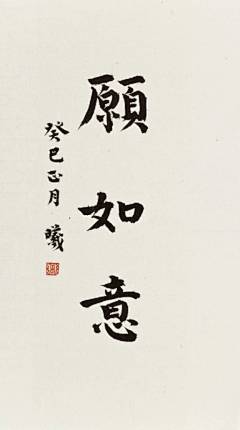 願如意
癸巳正月 曦